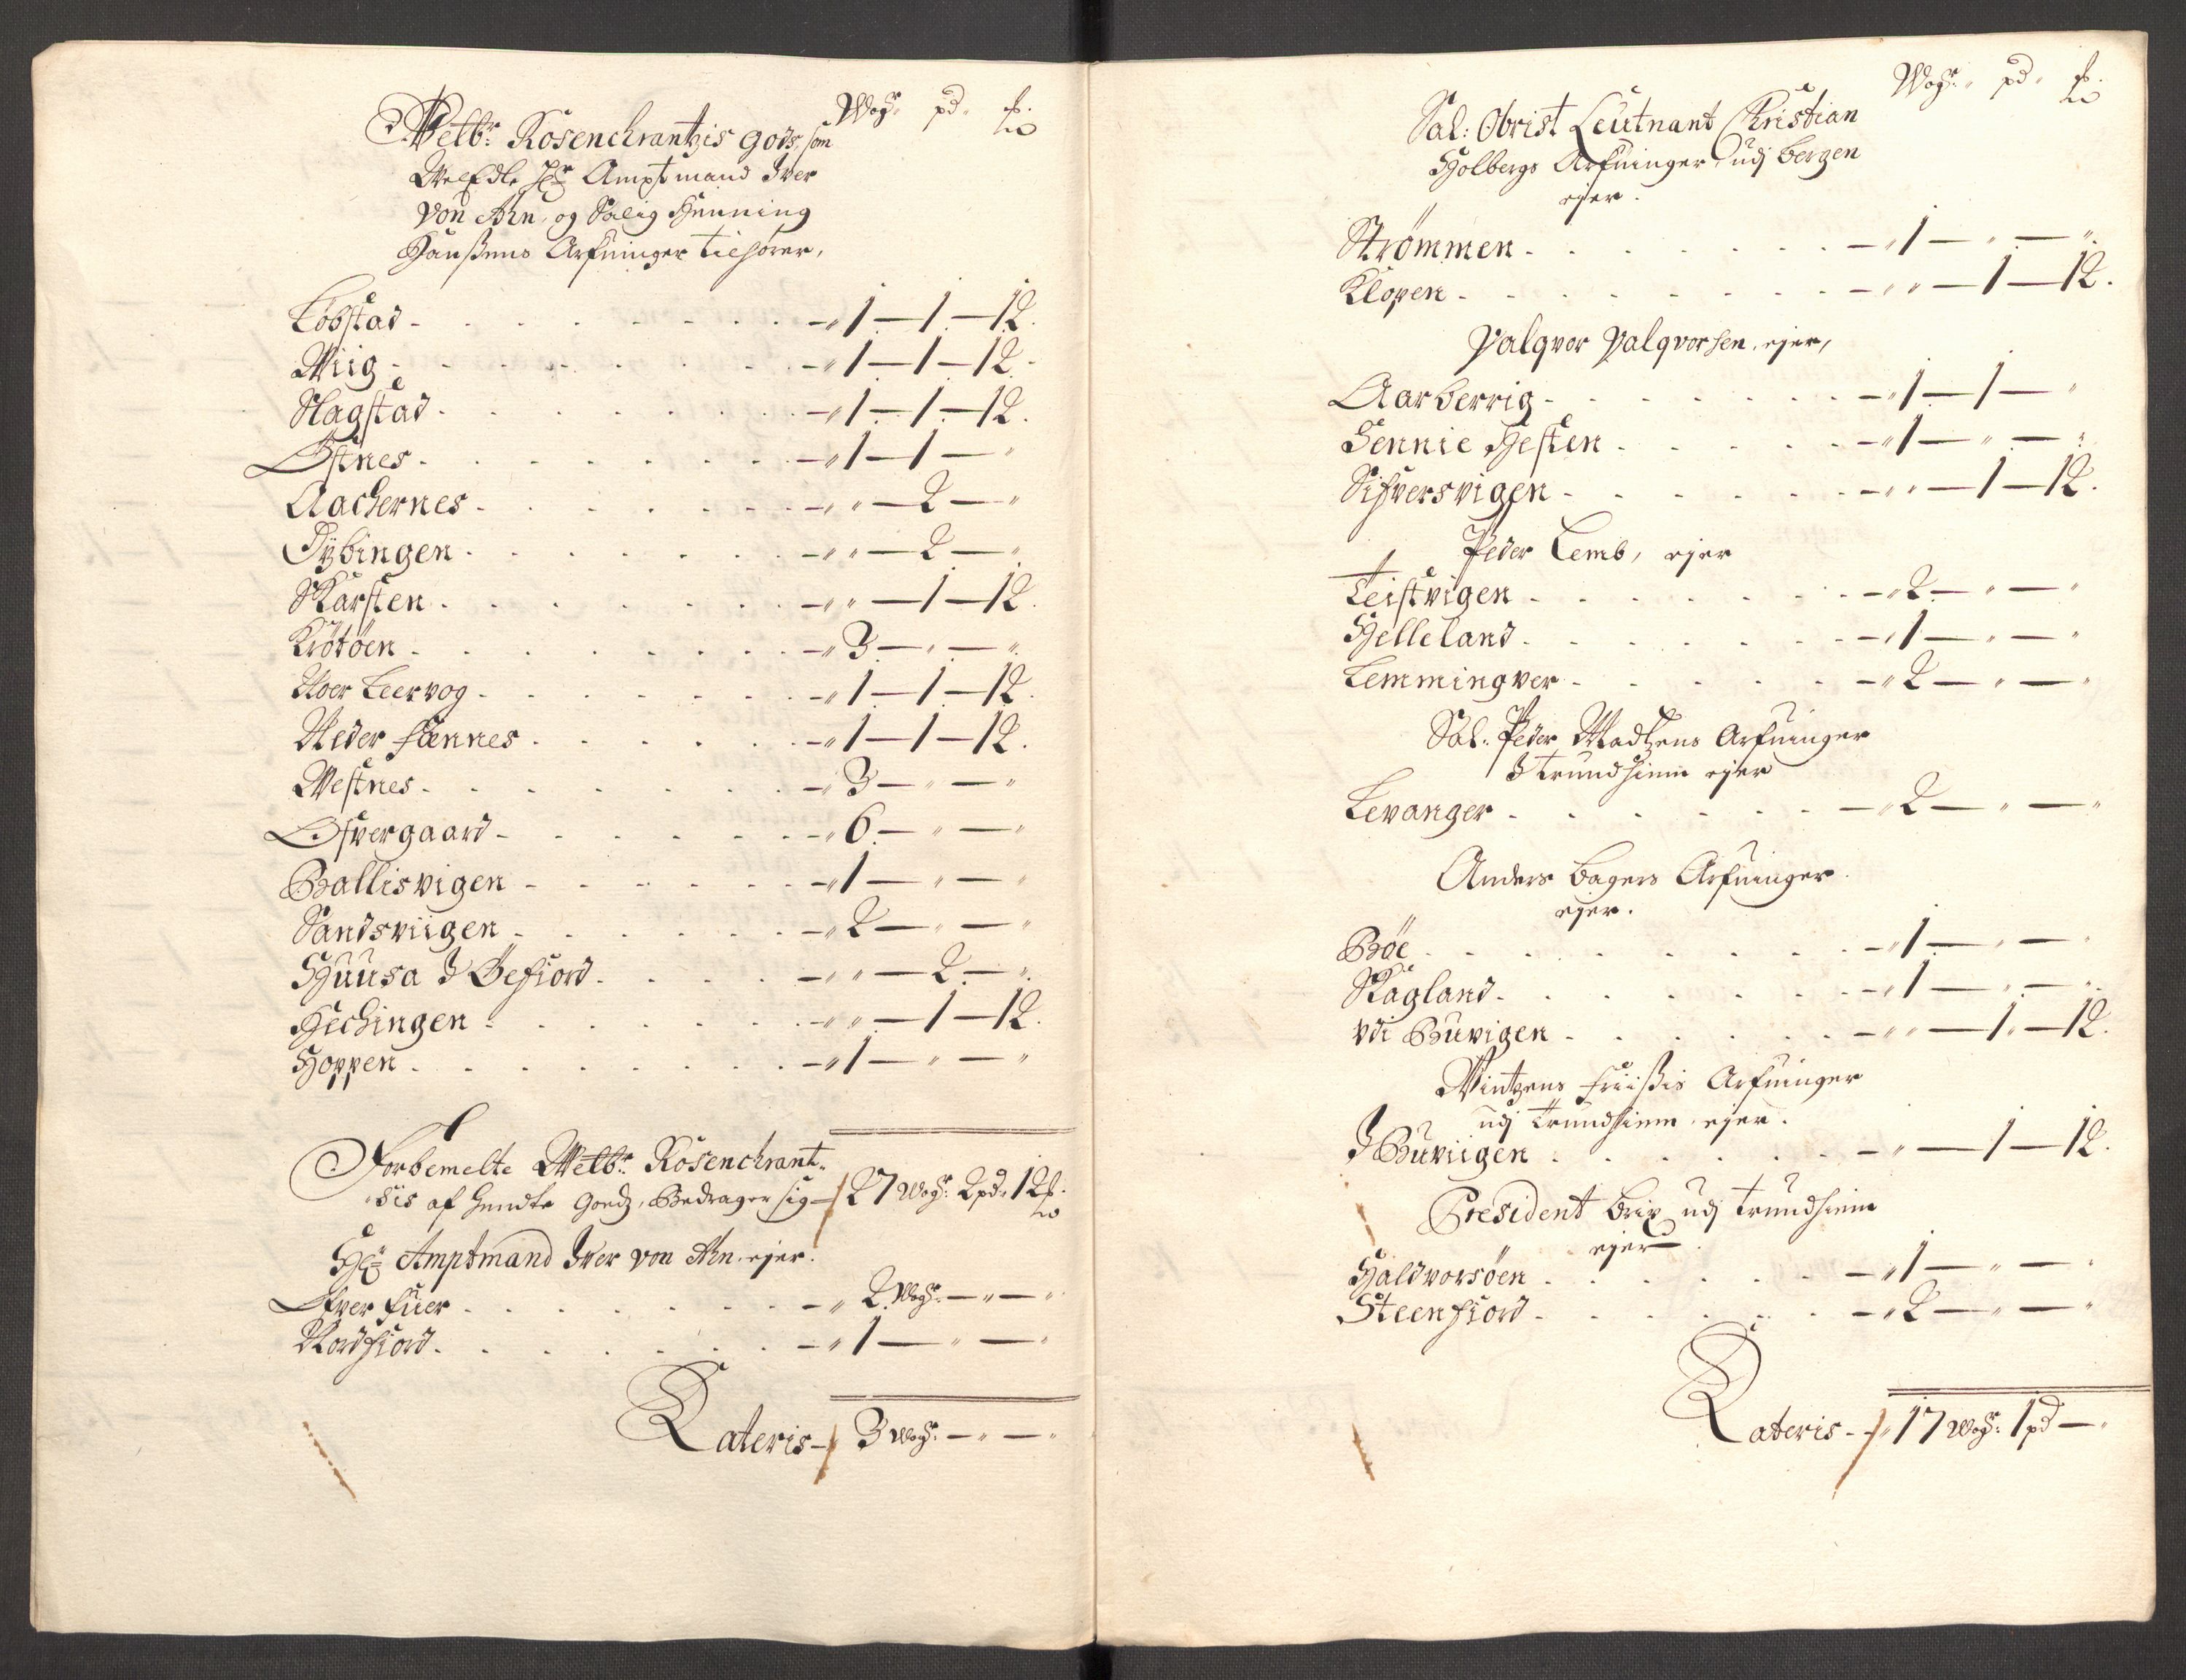 Wogr. pd. ℔.
Welbr. Rosenchrantzis gods, som
WelEdle Hr. Amptmand Iver
von Ahn, og Salig Henning
Hanßens Arfuinger tilhører,
Løbstad - - - - - - - - „ 1 — 1 — 12.
Wiig - - - - - - - - „ 1 — 1 — 12.
Slagstad - - - - - - - „ 1 — 1 — 12.
Østnes - - - - - - - - „ 1 — 1 — „
Aachernes - - - - - - - „ „ — 2 — „
Dybingen - - - - - - - „ „ — 2 — „
Skarsten - - - - - - - „ „ — 1 — 12.
Krötöen - - - - - - - „ 3 — „ — „
Noer Leervog - - - - - - „ 1 — 1 — 12.
Neder Fannes - - - - - - „ 1 — 1 — 12.
Westnes - - - - - - - „ 3 — „ — „
Ofvergaard - - - - - - - „ 6 — „ — „
Ballisvigen - - - - - - „ 1 — „ — „
Sandsviigen - - - - - - „ 2 — „ — „
Huusa I Øefiord - - - - „ „ — 2 — „
Hechingen - - - - - - - „ „ — 1 — 12.
Hoppen - - - - - - - - „ 1 — „ — „
Forbemelte Welbr. Rosenchrant-
zis af hendte Goedz, Bedrager sig — 27 Wogr. 2 pd. 12 ℔.
Hr. Amptmand Iver von Ahn ejer.
Ofver Fuer - - - - - - - „ 2. Wogr. — „ — „
Nordfiord - - - - - - - „ 1 — „ — „
Lateris — 3 Wogr. — „ — „
Wogr. pd. ℔.
Sal: Obrist Leutnant Christian
Holbergs Arfuinger udj bergen
ejer.
Strømmen - - - - - - - „ 1 — „ — „
Klopen - - - - - - - - „ „ — 1 — 12.
Valqvor Valqvorsen, ejer,
Aarberrig - - - - - - - „ 1 — 1 — „
Sennie Hesten - - - - - „ 1 — „ — „
Sifversvigen - - - - - - „ „ — 1 — 12.
Peder Lemb, ejer
Teistvigen - - - - - - „ 2 — „ — „
Helleland - - - - - - - „ 1 — „ — „
Lemmingver - - - - - - „ 2 — „ — „
Sal: Peder Madtzens Arfuinger
I trundhiem ejer
Levanger - - - - - - - „ 2 — „ — „
Anders bagers Arfuinger
ejer.
Böe - - - - - - - - „ 1 — „ — „
Skagland - - - - - - - „ 1 — „ — „
vdi Buvigen - - - - - - „ „ — 1 — 12.
Wintzens Friißis Arfuinger
udj Trundhiem ejer.
I Buviigen - - - - - - - „ — 1 — 12.
President brix udj trundhiem
ejer
Haldvorsöen - - - - - - „ 1 — „ — „
Steenfiord - - - - - - - „ 2 — „ — „
Lateris - - „ 17 Wogr: 1 pd — „